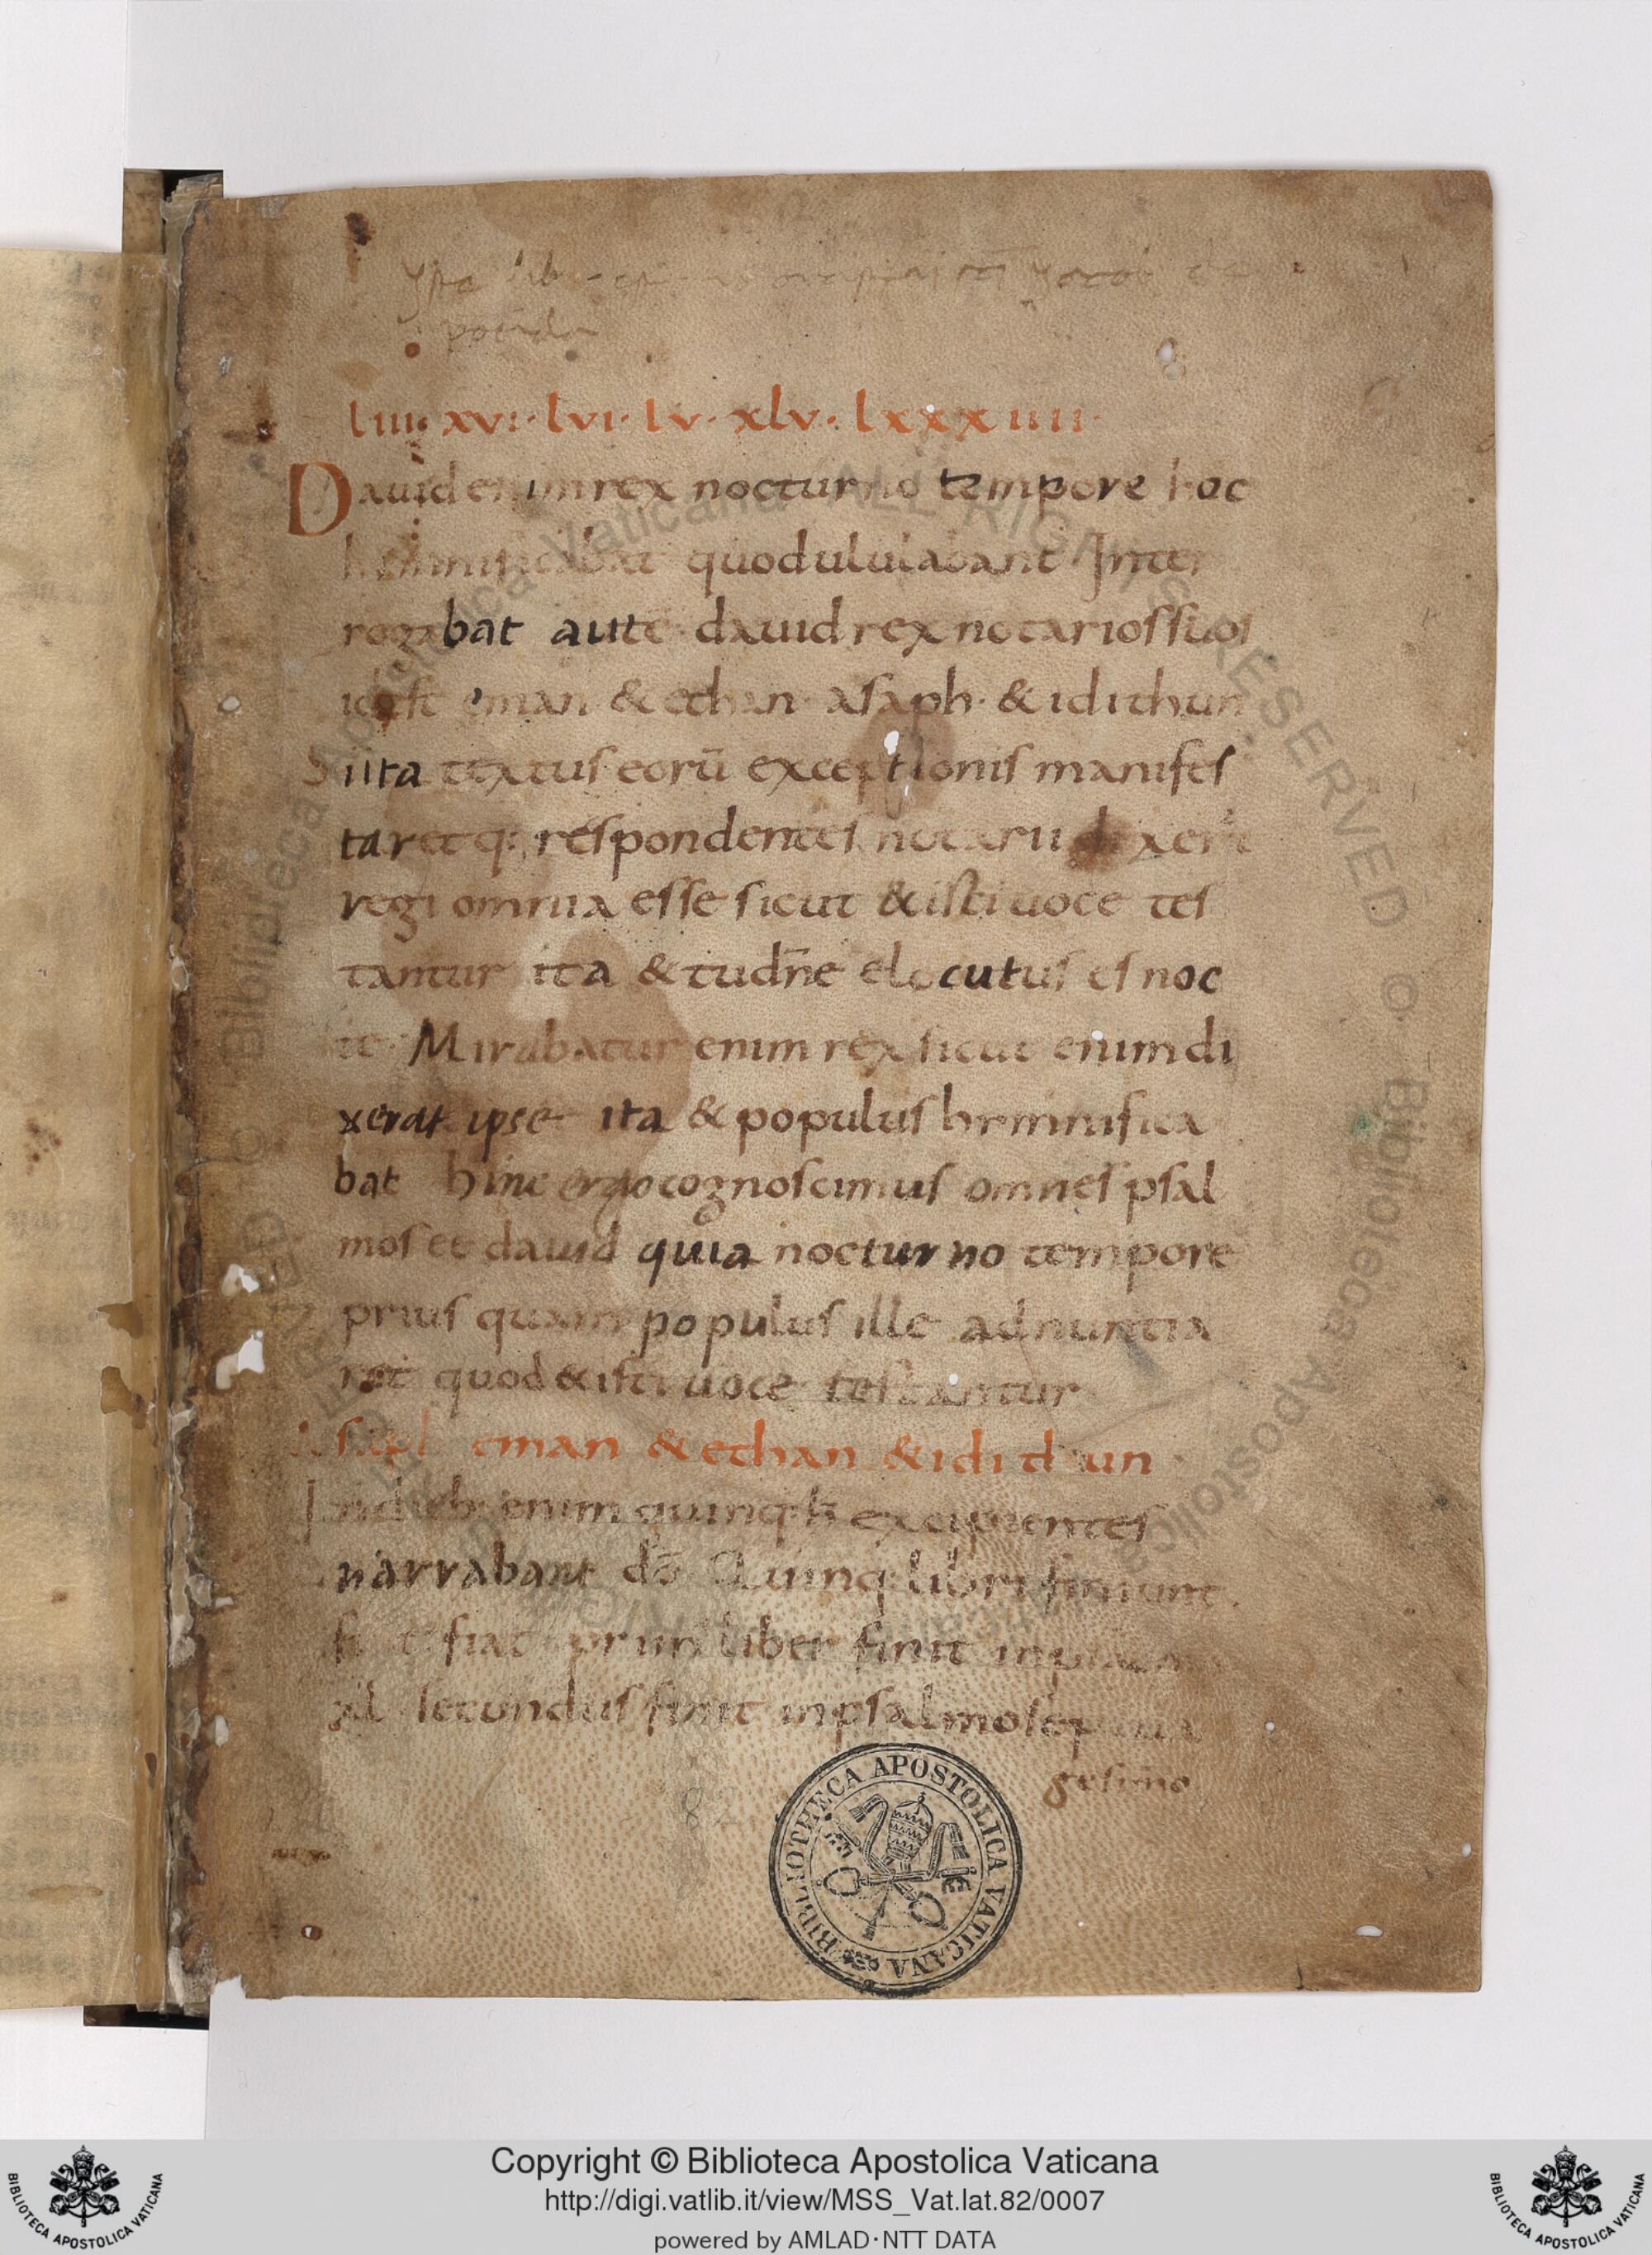 liiii· xvi· lvi· lv· xlv· lxxxiiii·
Dauid enim rex nocturno tempore hoc
quod ululabant Inter
rogabat autē dauid rex notarios suos
idest eman & ethan· asaph· & idithun
Si ita textus eorū exceptionis manifes
taret q: respondentes notarii dixer̄
regi omnia esse sicut & isti uoce tes
tantur ita & tu dn̄e elocutus es noc
te· Mirabatur enim rex sicut enim di
xerat ipse ita & populus hrminifica
bat hinc ergo cognoscimus omnes psal
mos ee dauid quia nocturno tempore
prius quam populus ille adnuntia
ret quod & isti uoce testantur
Asaph eman & ethan & idithun
enim quinq: excipientes
narrabant dō Quinq: libri finiunt·
fiat fiat prim liber finit in
xl secundus finit in psalmo septua
gesimo
82
BIBLIOTHECA APOSTOLICA VATICANA
© Biblioteca Apostolica Vaticana ALL RIGHTS RESERVED © Biblioteca Apostolica Vaticana ALL RIGHTS RESERVED
Copyright © Biblioteca Apostolica Vaticana
http://digi.vatlib.it/view/MSS_Vat.lat.82/0007
powered by AMLAD·NTT DATA
BIBLIOTECA APOSTOLICA VATICANA
BIBLIOTECA APOSTOLICA VATICANA